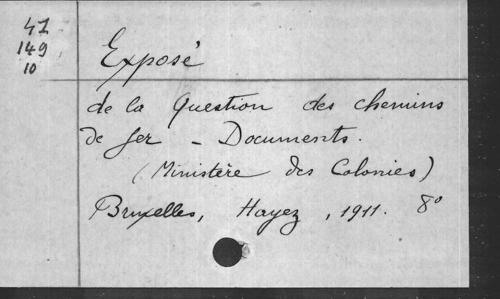 41
149
10
Exposé
de la Question des chemins
de fer - Documents.
(Ministère des Colonies)
Bruxelles, Hayez, 1911. 8°